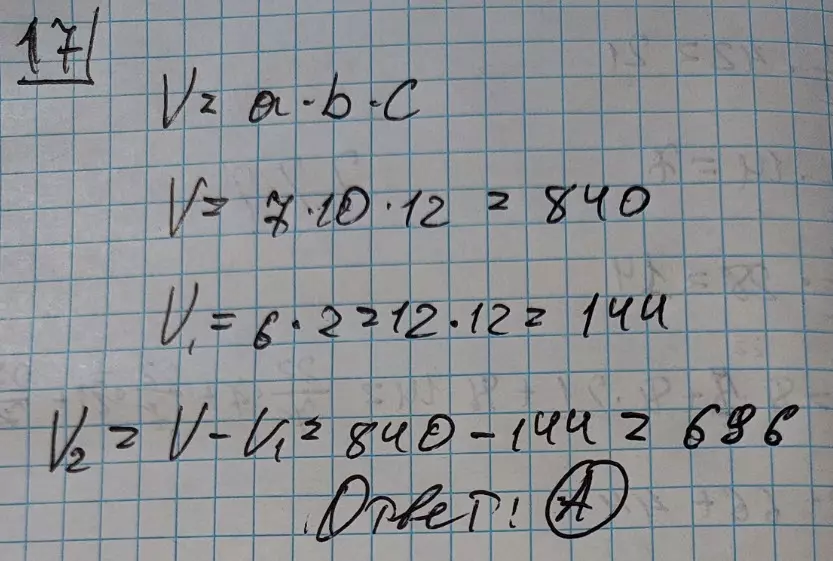 17
V = a · b · c
V = 7 · 10 · 12 = 840
V₁ = 6 · 2 = 12 · 12 = 144
V₂ = V - V₁ = 840 - 144 = 696
Ответ: А